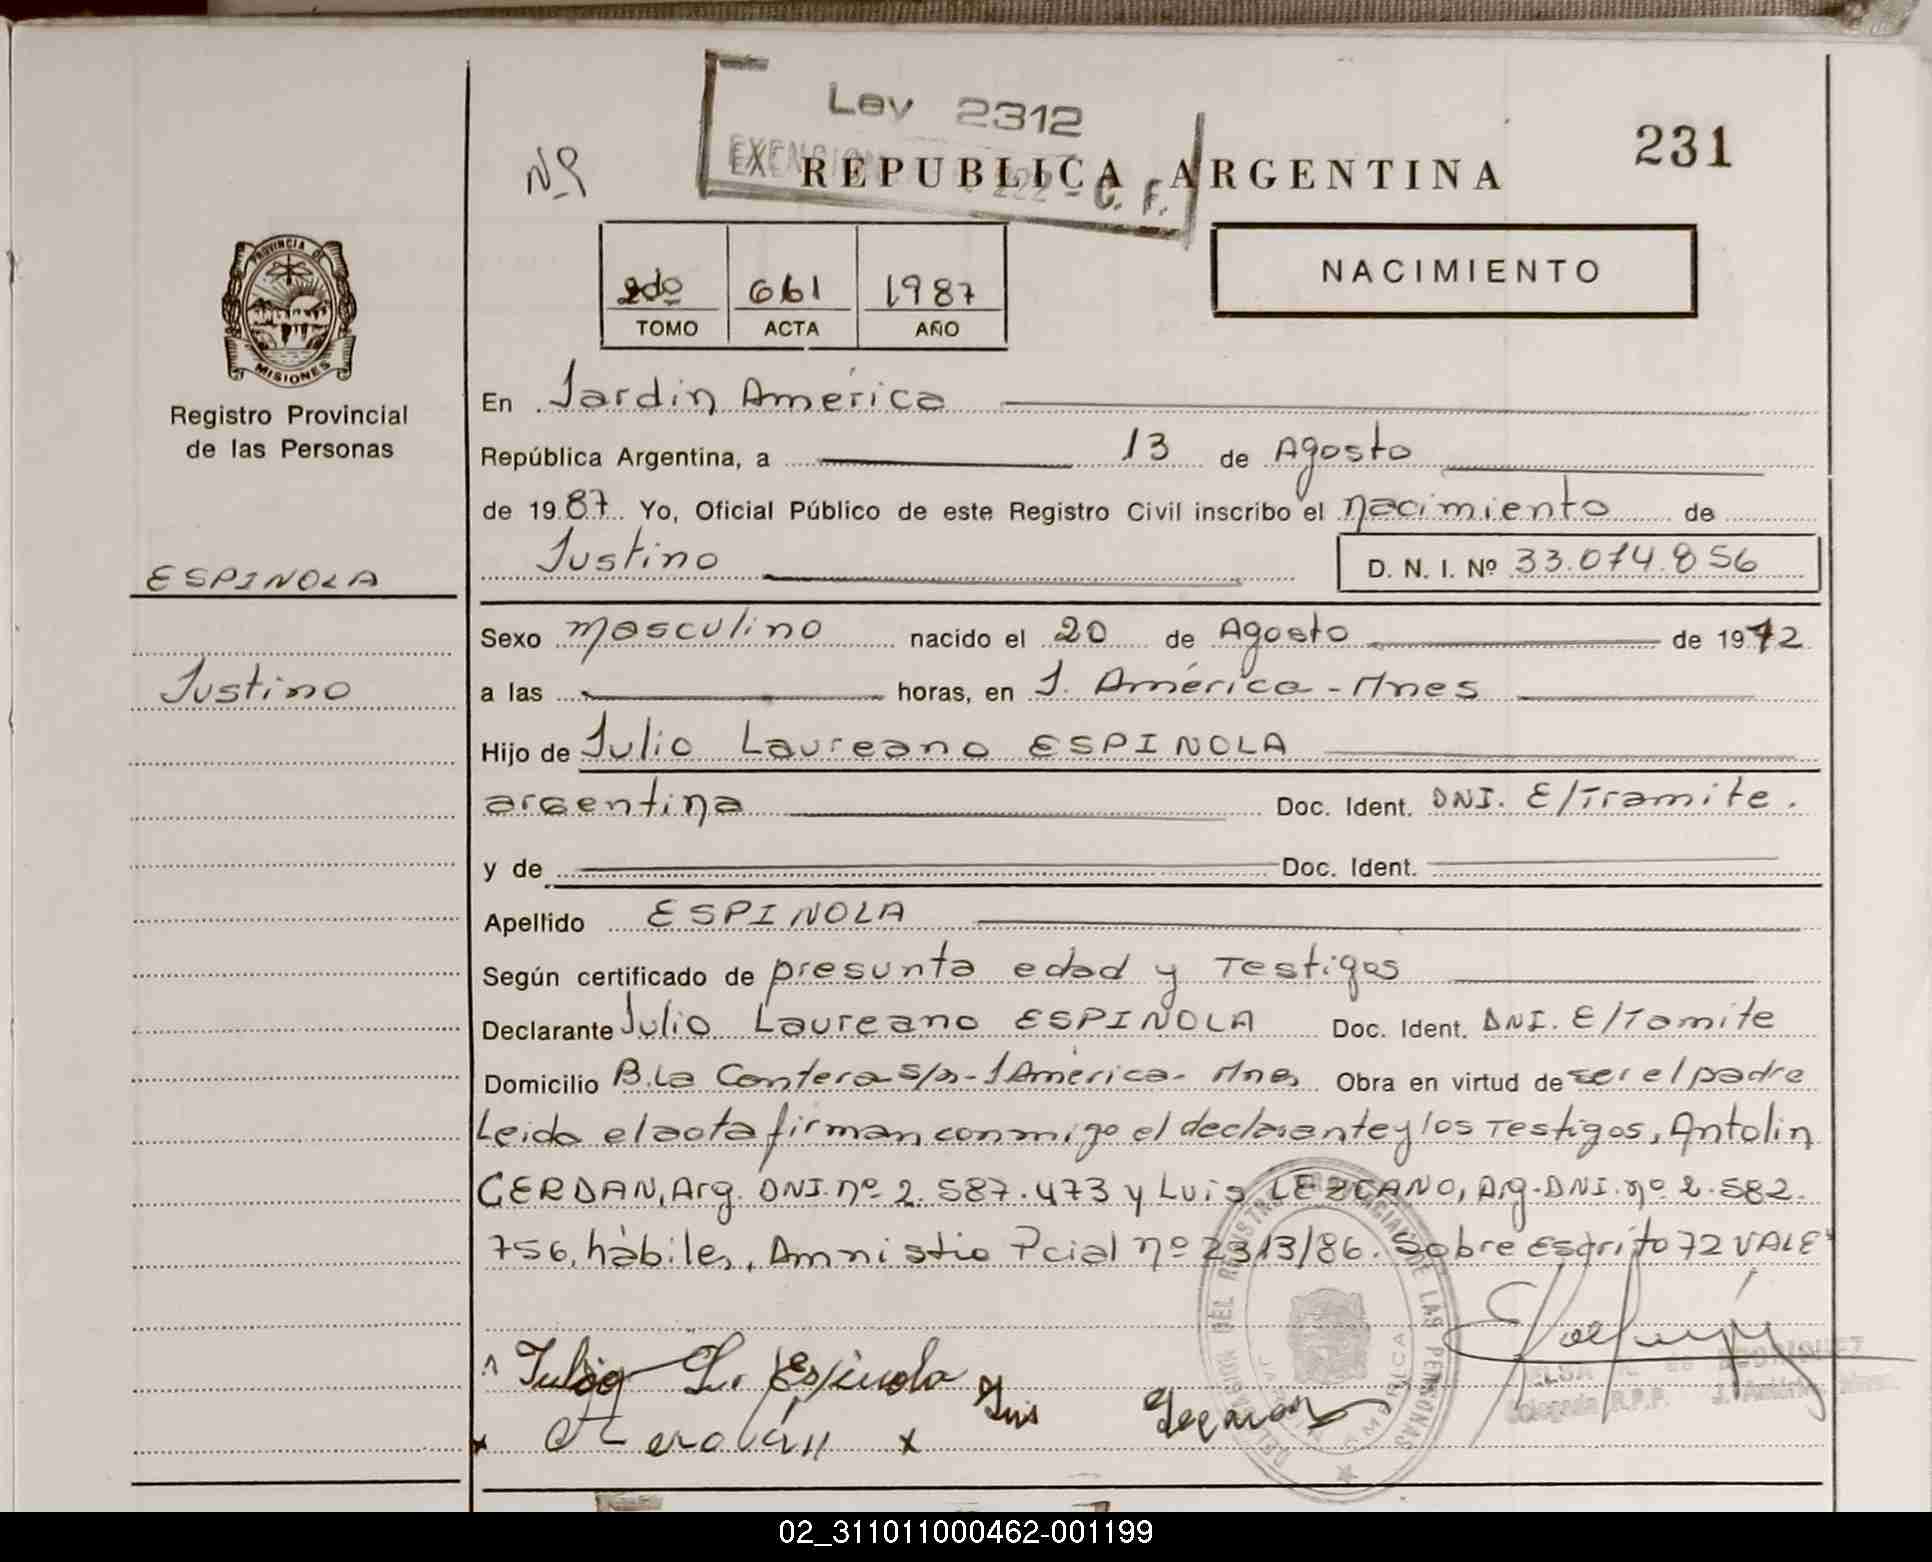 Ley 2312
EXENCION 222 - C. F.
Nº
REPUBLICA ARGENTINA
231
PROVINCIA DE
MISIONES
Registro Provincial
de las Personas
2do 661 1987
TOMO ACTA AÑO
NACIMIENTO
En Jardin América
República Argentina, a 13 de Agosto
de 1987 Yo, Oficial Público de este Registro Civil inscribo el nacimiento de
Justino D. N. I. Nº 33.074.856
ESPINOLA
Justino
Sexo masculino nacido el 20 de Agosto de 1972
a las horas, en J. América - Mnes
Hijo de Julio Laureano ESPINOLA
argentina Doc. Ident. DNI. E/Tramite.
y de Doc. Ident.
Apellido ESPINOLA
Según certificado de presunta edad y Testigos
Declarante Julio Laureano ESPINOLA Doc. Ident. DNI. E/Tamite
Domicilio B. La Cantera s/n - J América - Mnes Obra en virtud de ser el padre
Leida el acta firman conmigo el declarante y los Testigos, Antolin
CERDAN, Arg. DNI. nº 2.587.473 y Luis LEZCANO, Arg. DNI. nº 2.582.
756, hábiles, Amnistia Pcial nº 2313/86. Sobre Escrito 72 VALE
Julio L. Espinola
Luis Lezcano
DEL REGISTRO PROVINCIAL DE LAS PERSONAS
AMERICA
Delegada R.P.P. J. América
02_311011000462-001199